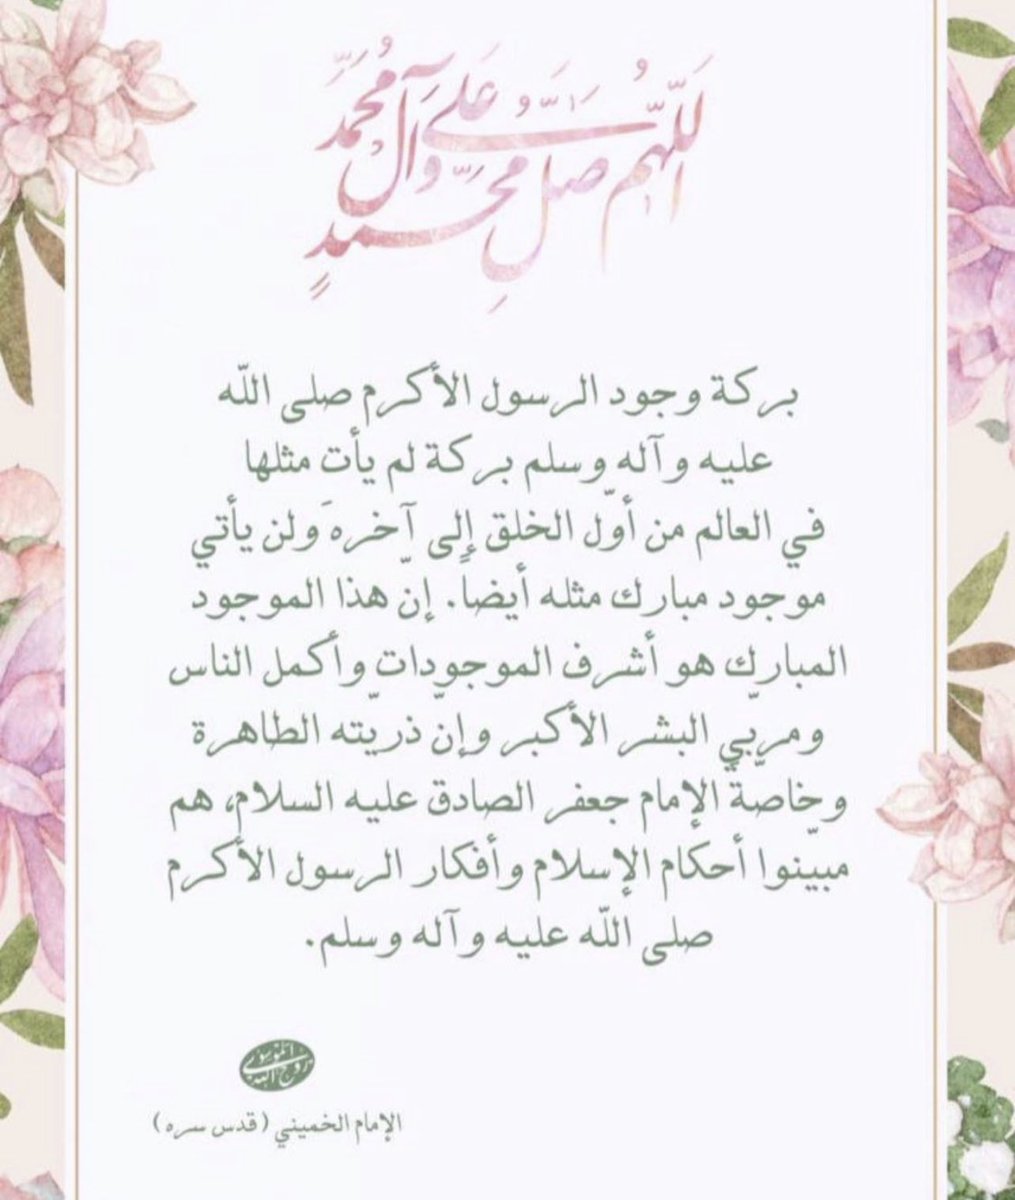 اللَّهُمَّ صَلِّ عَلَى مُحَمَّدٍ وَآلِ مُحَمَّدٍ
بركة وجود الرسول الأكرم صلى اللّه
عليه وآله وسلم بركة لم يأت مثلها
في العالم من أوّل الخلق إلى آخره َولن يأتي
موجود مبارك مثله أيضاً. إنّ هذا الموجود
المبارك هو أشرف الموجودات وأكمل الناس
ومربّي البشر الأكبر وإنّ ذريّته الطاهرة
وخاصّة الإمام جعفر الصادق عليه السلام، هم
مبيّنوا أحكام الإسلام وأفكار الرسول الأكرم
صلى اللّه عليه وآله وسلم.
روح الله الموسوي
الإمام الخميني (قدس سره)